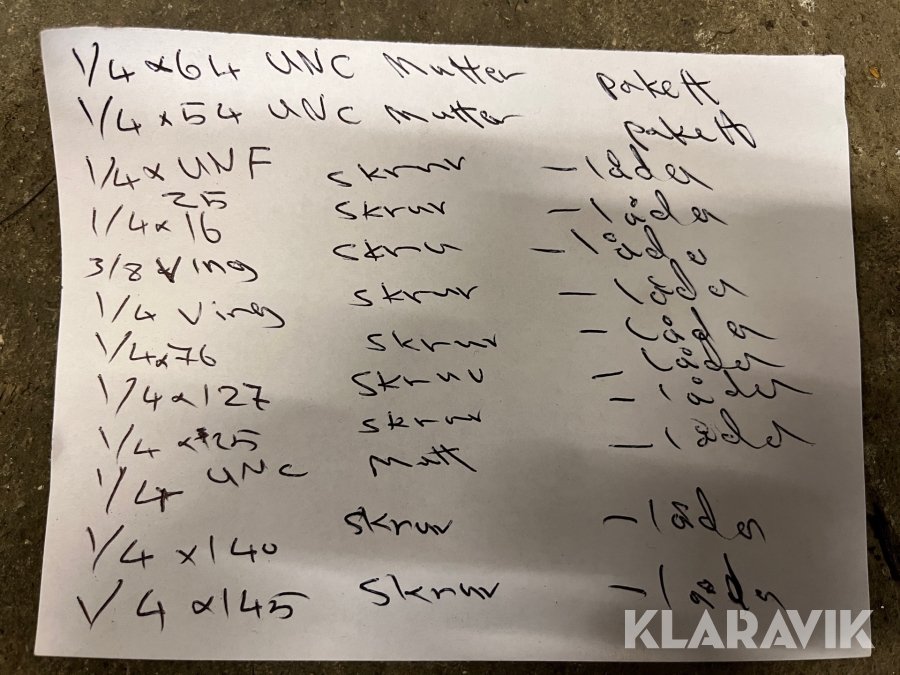 1/4 x 64 UNC Mutter pakett
1/4 x 54 UNC Mutter pakett
1/4 x UNF skruv - låda
25
1/4 x 16 skruv - låda
3/8 Ving skruv - låda
1/4 Ving skruv - låda
1/4 x 76 skruv - låda
1/4 x 127 skruv - låda
1/4 x 25 skruv - låda
1/4 UNC Mutt - låda
1/4 x 140 skruv - låda
1/4 x 145 skruv - låda
KLARAVIK